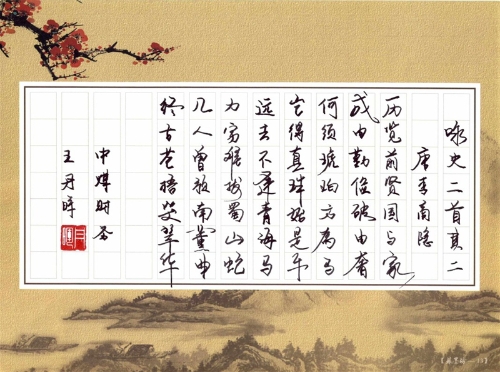 咏史二首其二
唐李商隐
历览前贤国与家
成由勤俭破由奢
何须琥珀方为枕
岂得真珠始是车
远去不逢青海马
力穷难拔蜀山蛇
几人曾预南薰曲
终古苍梧哭翠华
中煤财务
王丹